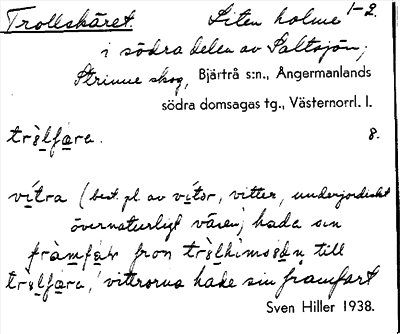 Trollskäret. Liten holme 1-2.
i södra delen av Saltsjön;
Strinne skog, Bjärtrå s:n., Ångermanlands
södra domsagas tg., Västernorrl. l.
8.
vítra (best. pl. av vítər, vitter, underjordiskt
övernaturligt väsen; hade sin
till
vittrorna hade sin framfart
Sven Hiller 1938.